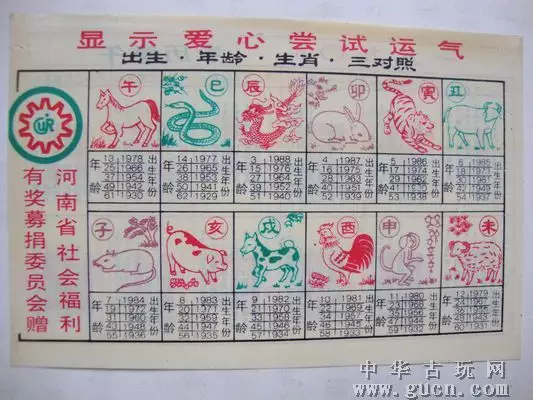 显示爱心尝试运气
出生·年龄·生肖·三对照
河南省社会福利
有奖募捐委员会赠
午
年龄 出生年份
13 1978
25 1966
37 1954
49 1942
61 1930
巳
年龄 出生年份
14 1977
26 1965
38 1953
50 1941
62 1929
辰
年龄 出生年份
3 1988
15 1976
27 1964
39 1952
51 1940
卯
年龄 出生年份
4 1987
16 1975
28 1963
40 1951
52 1939
寅
年龄 出生年份
5 1986
17 1974
29 1962
41 1950
53 1938
丑
年龄 出生年份
6 1985
18 1973
30 1961
42 1949
54 1937
子
年龄 出生年份
7 1984
19 1972
31 1960
43 1948
55 1936
亥
年龄 出生年份
8 1983
20 1971
32 1959
44 1947
56 1935
戌
年龄 出生年份
9 1982
21 1970
33 1958
45 1946
57 1934
酉
年龄 出生年份
10 1981
22 1969
34 1957
46 1945
58 1933
申
年龄 出生年份
11 1980
23 1968
35 1956
47 1944
59 1932
未
年龄 出生年份
12 1979
24 1967
36 1955
48 1943
60 1931
中华古玩网
www.gucn.com